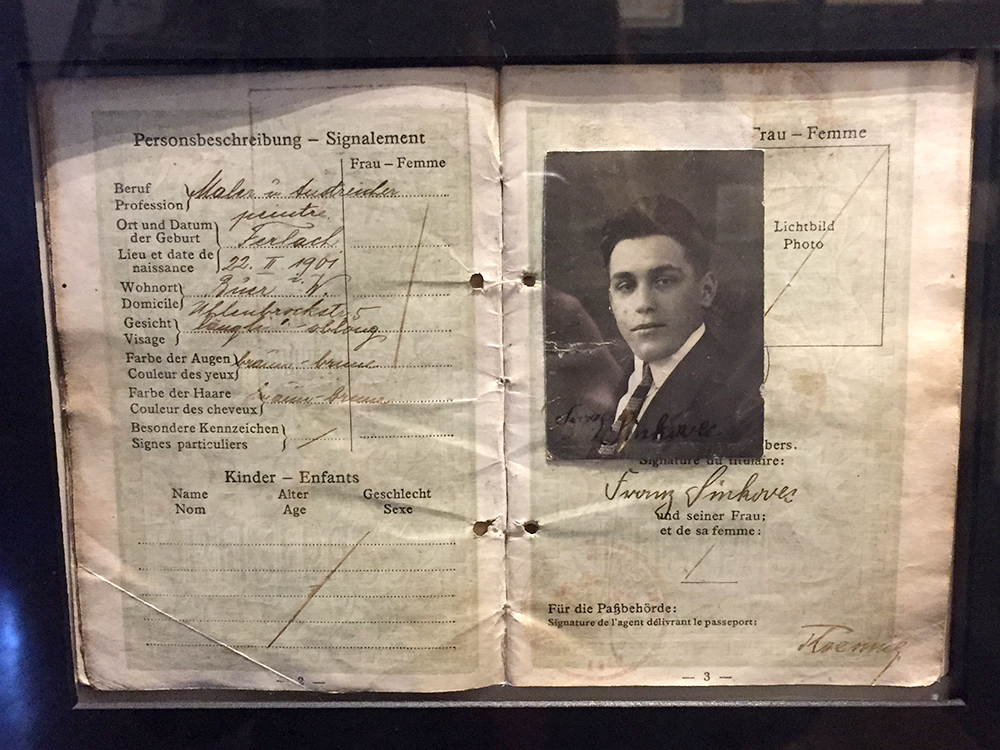 Personsbeschreibung – Signalement
Frau – Femme
Beruf
Profession
Maler u Anstreicher
peintre
Ort und Datum
der Geburt
Ferlach
Lieu et date de
naissance
22. II. 1901
Wohnort
Domicile
Buer i. W.
Ahlenbrockstr 5
Gesicht
Visage
längl. - oblong
Farbe der Augen
Couleur des yeux
braun - brune
Farbe der Haare
Couleur des cheveux
braun - brune
Besondere Kennzeichen
Signes particuliers
Kinder – Enfants
Name Alter Geschlecht
Nom Age Sexe
— 2 —
Frau – Femme
Lichtbild
Photo
Franz Sinkovec
bers.
Signature du titulaire:
Franz Sinkovec
und seiner Frau;
et de sa femme:
Für die Paßbehörde:
Signature de l'agent délivrant le passeport:
Koennig
— 3 —